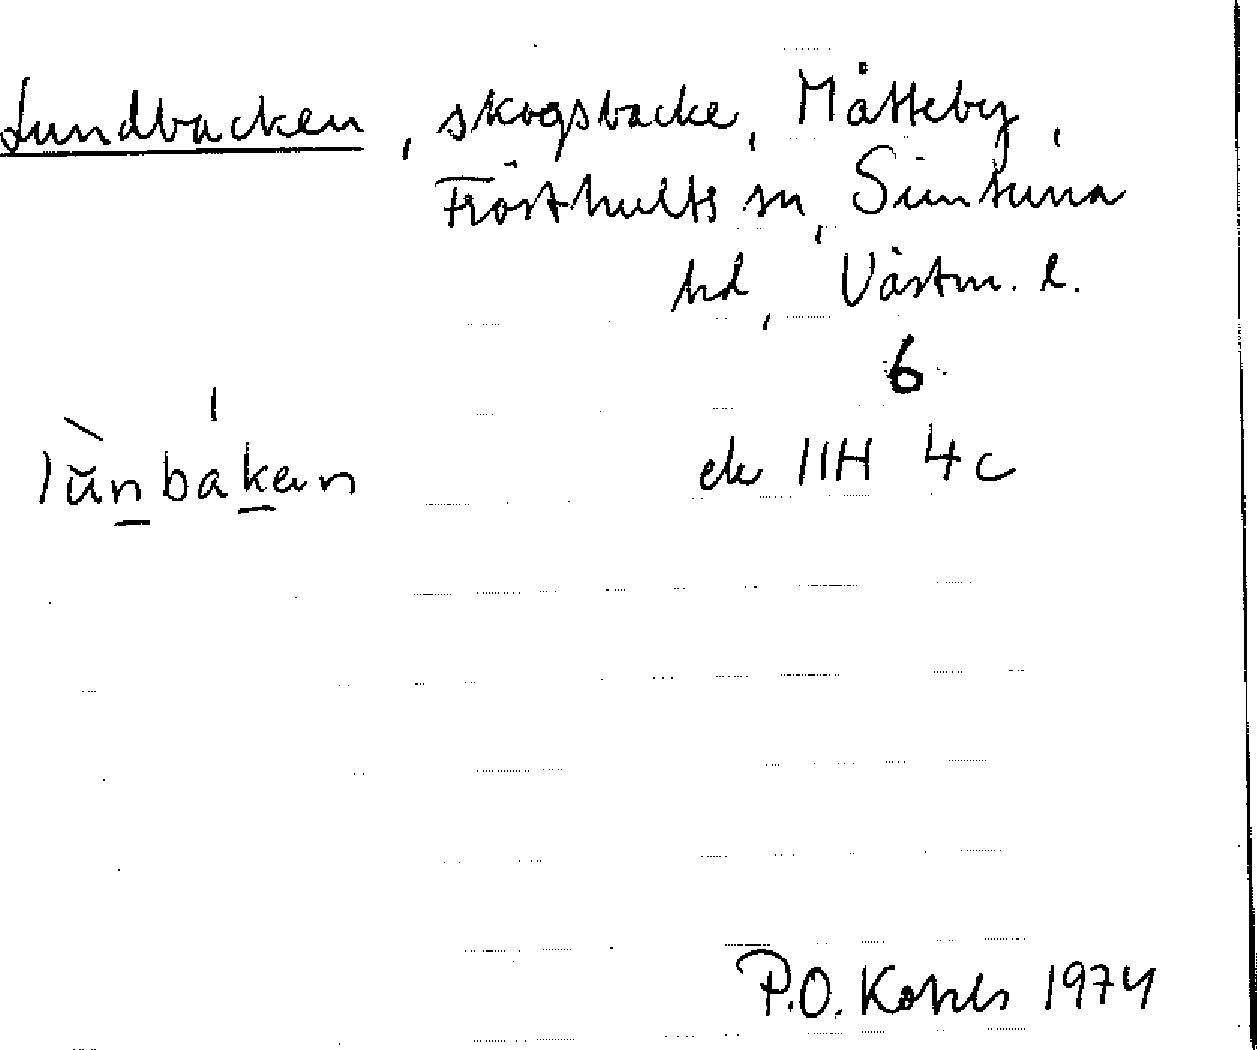 Lundbacken, skogsbacke, Måtteby,
Frösthults sn, Simtuna
hd, Västm. l.
6
lŭnbakən ek 11H 4c
P.O. Kohls 1974